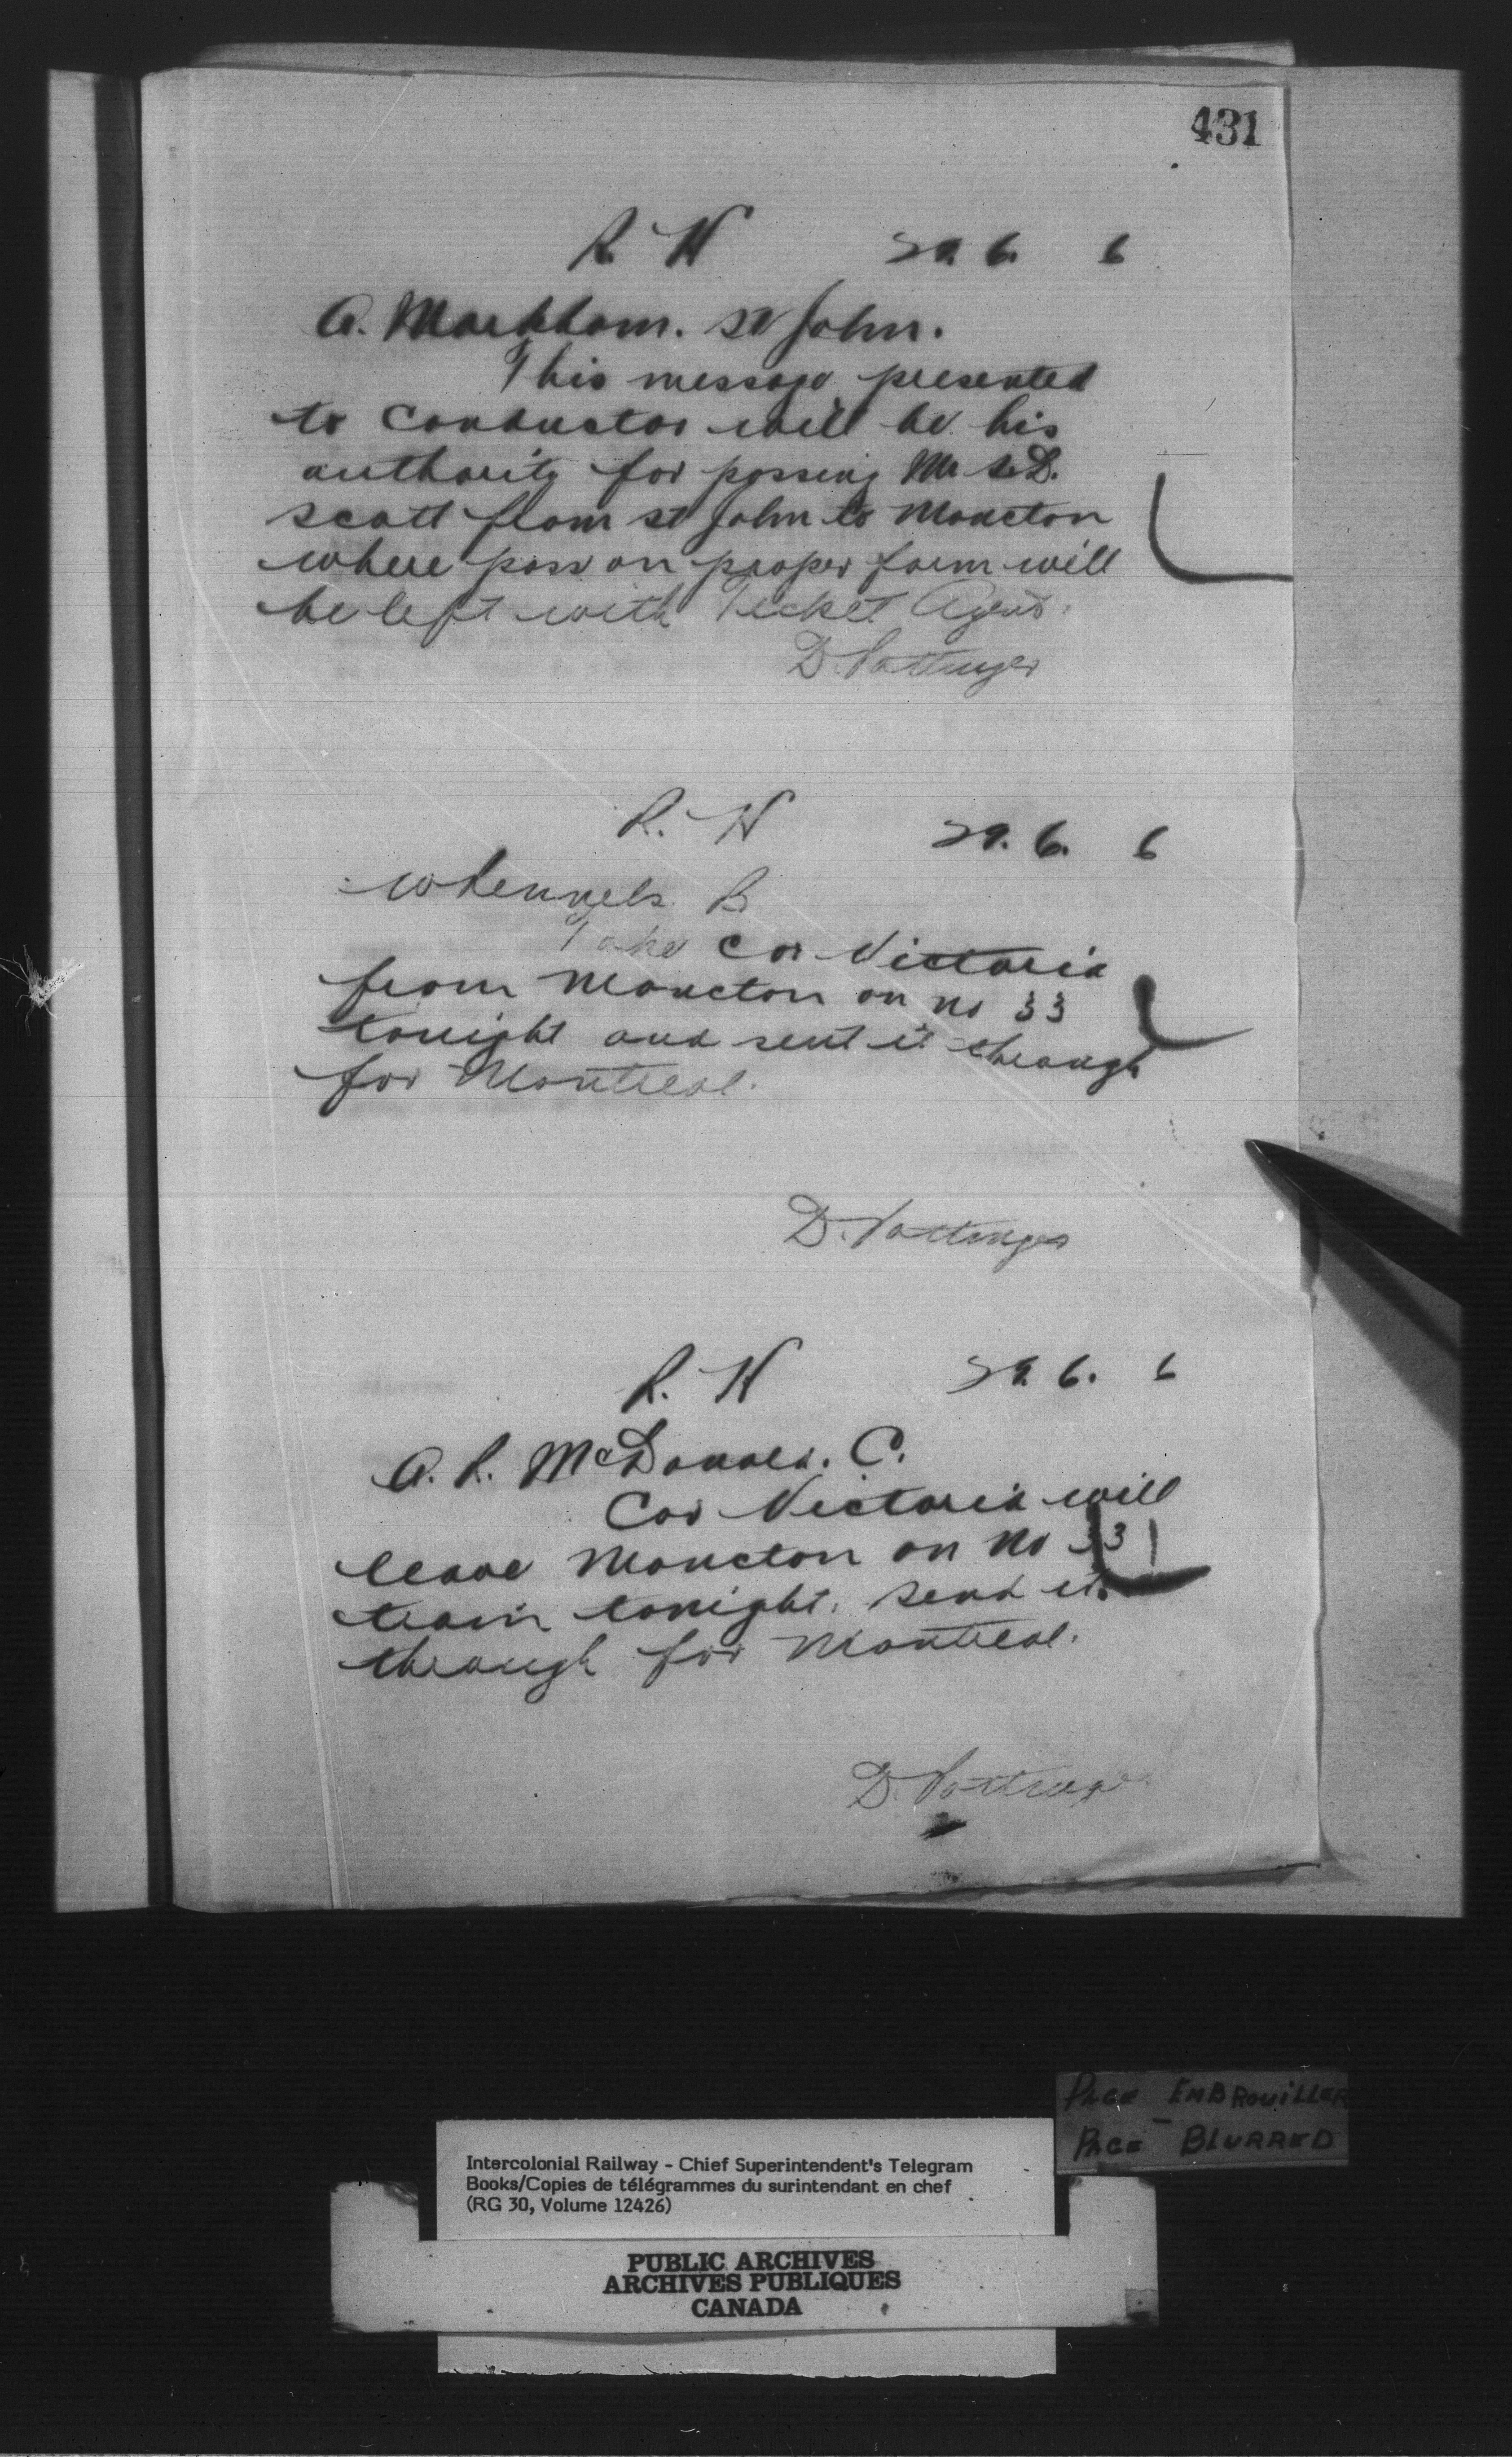 431
R. H 29. 6. 6
A. Markham. St John.
This message presented
to Conductor will be his
authority for passing Mr S.D.
Scott from St John to Moncton
where pass on proper form will
be left with Ticket Agent.
D. Pottinger
R. H 29. 6. 6
R.
Take Car Victoria
from Moncton on no 33
tonight and sent it through
for Montreal.
D. Pottinger
R. H 29. 6. 6
A. R. McDonald. C.
Car Victoria will
leave Moncton on No 33
train tonight. send it
through for Montreal.
D. Pottinger
PAGE EMBROUILLER
PAGE - BLURRED
Intercolonial Railway - Chief Superintendent's Telegram
Books/Copies de télégrammes du surintendant en chef
(RG 30, Volume 12426)
PUBLIC ARCHIVES
ARCHIVES PUBLIQUES
CANADA